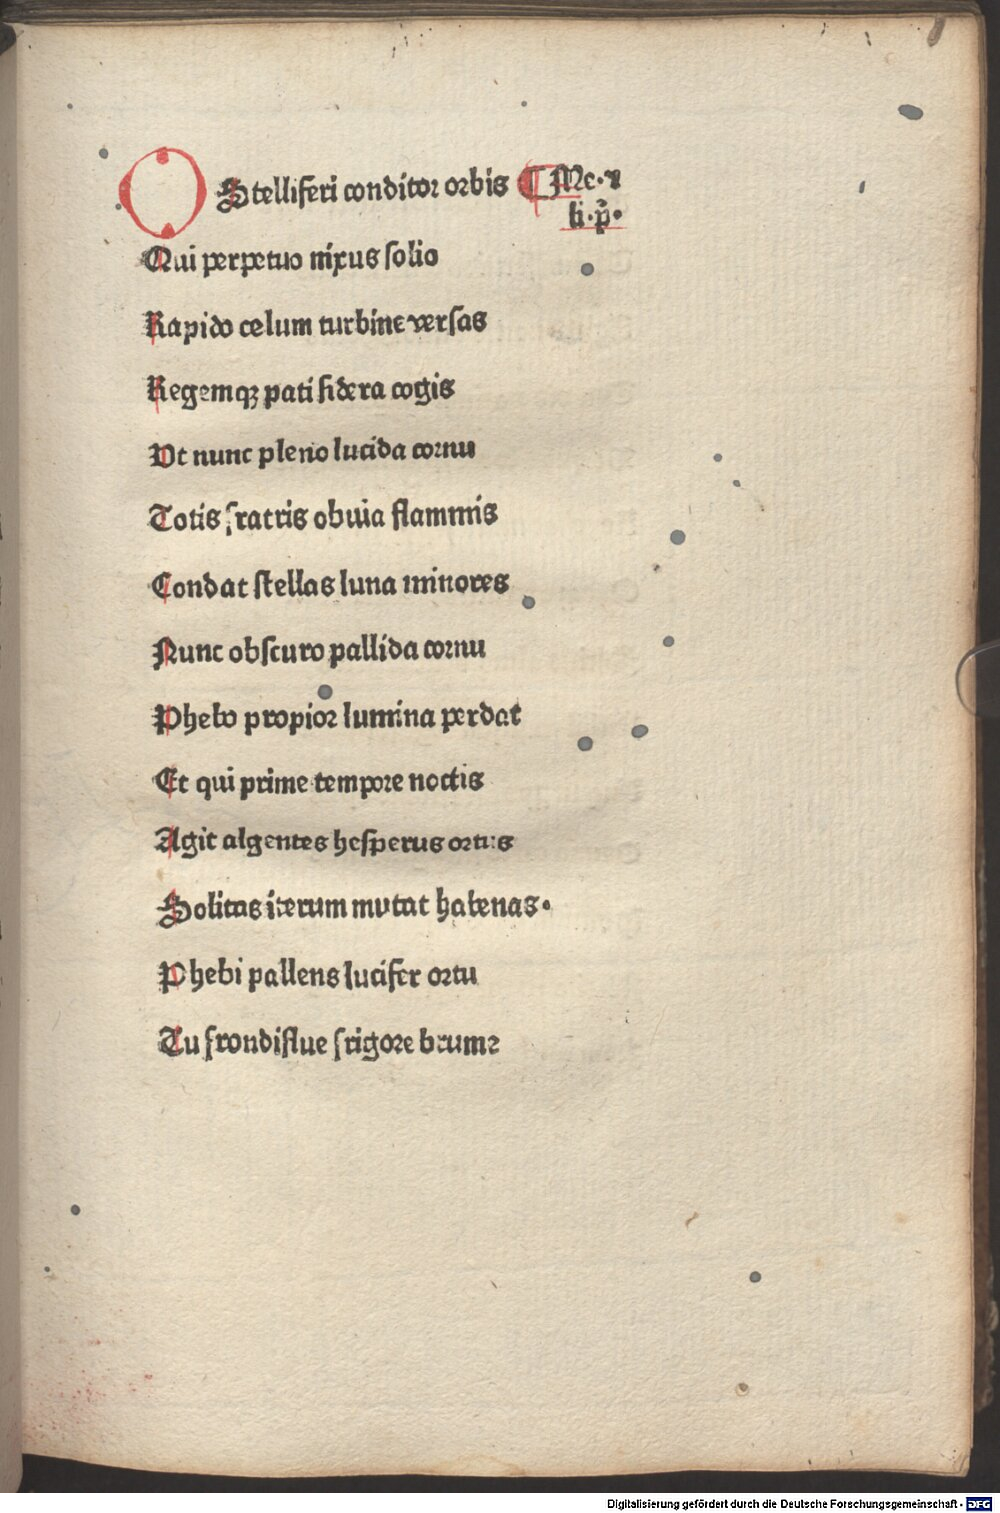 O Stelliferi conditor orbis ¶ Me·v
li·p̄·
Qui perpetuo nixus solio
Rapido celum turbine versas
Regemqꝫ pati sidera cogis
Vt nunc pleno lucida cornu
Totis fratris obuia flammis
Condat stellas luna minores
Nunc obscuro pallida cornu
Phebo propior lumina perdat
Et qui prime tempore noctis
Agit algentes hesperus ortus
Solitas iterum mutat habenas·
Phebi pallens lucifer ortu
Tu frondiflue frigore brume
Digitalisierung gefördert durch die Deutsche Forschungsgemeinschaft - DFG